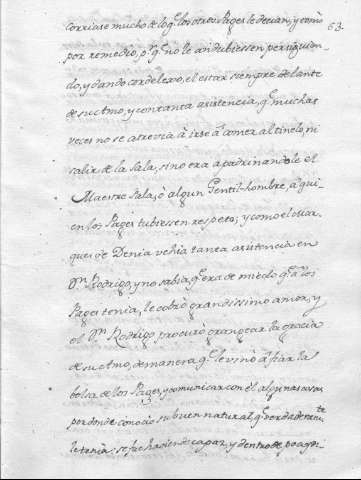 63.
corriase mucho de lo q̃ los otros Pages le decian, y tomò
por remedio, p.ª q̃ no le andubiessen persiguien-
do, y dando cordelexo, el estar siempre delante
de su Amo, y con tanta asistencia, q̃ muchas
veces no se atrevia à irse à comer al tinelo, ni
salir de la Sala, sino era apadrinandole el
Maestre Sala, ò algun Gentil-hombre, à qui-
en los Pages tubiessen respeto; y como el Mar-
ques de Denia vehia tanta asistencia en
D.n Rodrigo, y no sabia, q̃ era de miedo q̃ à los
Pages tenia, le cobrò grandissimo amor, y
el D.n Rodrigo procurò grangear la gracia
de su Amo, de manera q̃ le vino à fiar la
bolsa de los Pages, y comunicar con èl algunas cosas
por donde conociò su buen natural, q̃ verdaderam.te
le tenia: se fue haciendo capaz, y dentro de poco